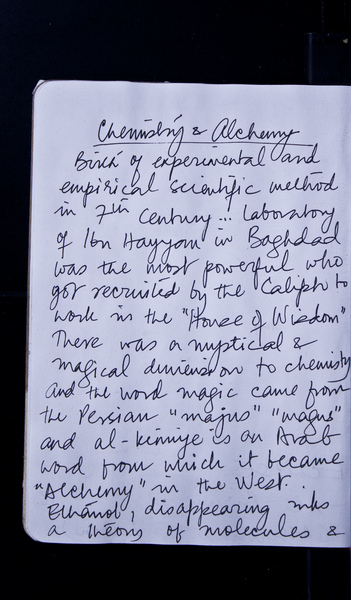 Chemistry & Alchemy
Birth of experimental and
empirical scientific method
in 7th Century... Laboratory
of Ibn Hayyan in Baghdad
was the most powerful who
got recruited by the Caliph to
work in the "House of Wisdom"
There was a mystical &
magical dimension to chemistry
and the word magic came from
the Persian "majus" "magus"
and al-kimiye is an Arab
word from which it became
"Alchemy" in the West.
Ethanol, disappearing inks
a theory of molecules &